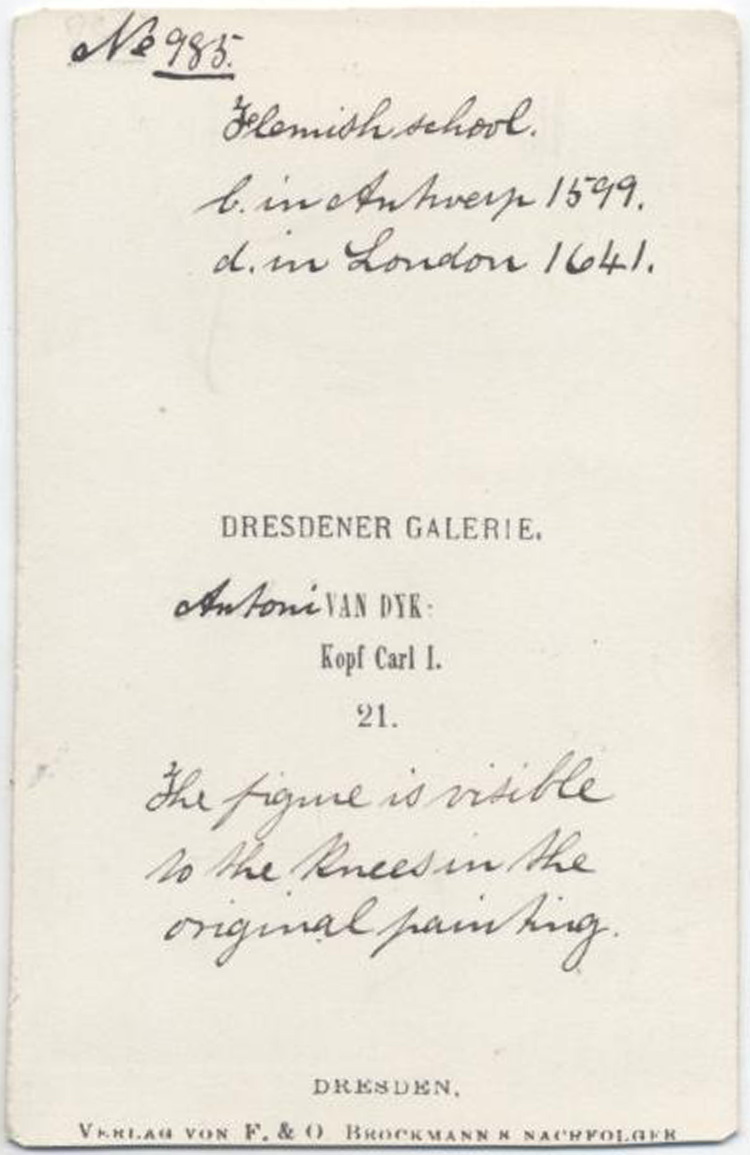 No 985.
Flemish school.
b. in Antwerp 1599.
d. in London 1641.
DRESDENER GALERIE.
Antoni VAN DYK:
Kopf Carl I.
21.
The figure is visible
to the knees in the
original painting.
DRESDEN.
VERLAG VON F. & O. BROCKMANN'S NACHFOLGER